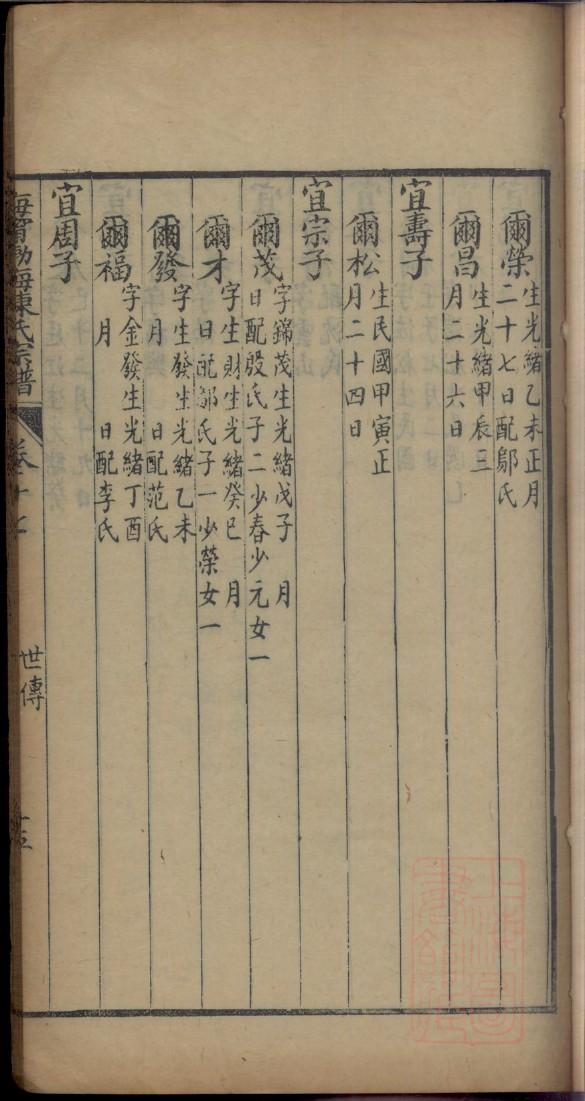 爾榮 生光緒乙未正月
二十七日配鄔氏
爾昌 生光緒甲辰三
月二十六日
宜壽子
爾松 生民國甲寅正
月二十四日
宜宗子
爾茂 字錦茂生光緒戊子 月
日配殷氏子二少春少元女一
爾才 字生財生光緒癸巳 月
日配鄔氏子一少榮女一
爾發 字生發生光緒乙未
月 日配范氏
爾福 字金發生光緒丁酉
月 日配李氏
宜周子
海寧勃海陳氏宗譜 卷十七
世傳